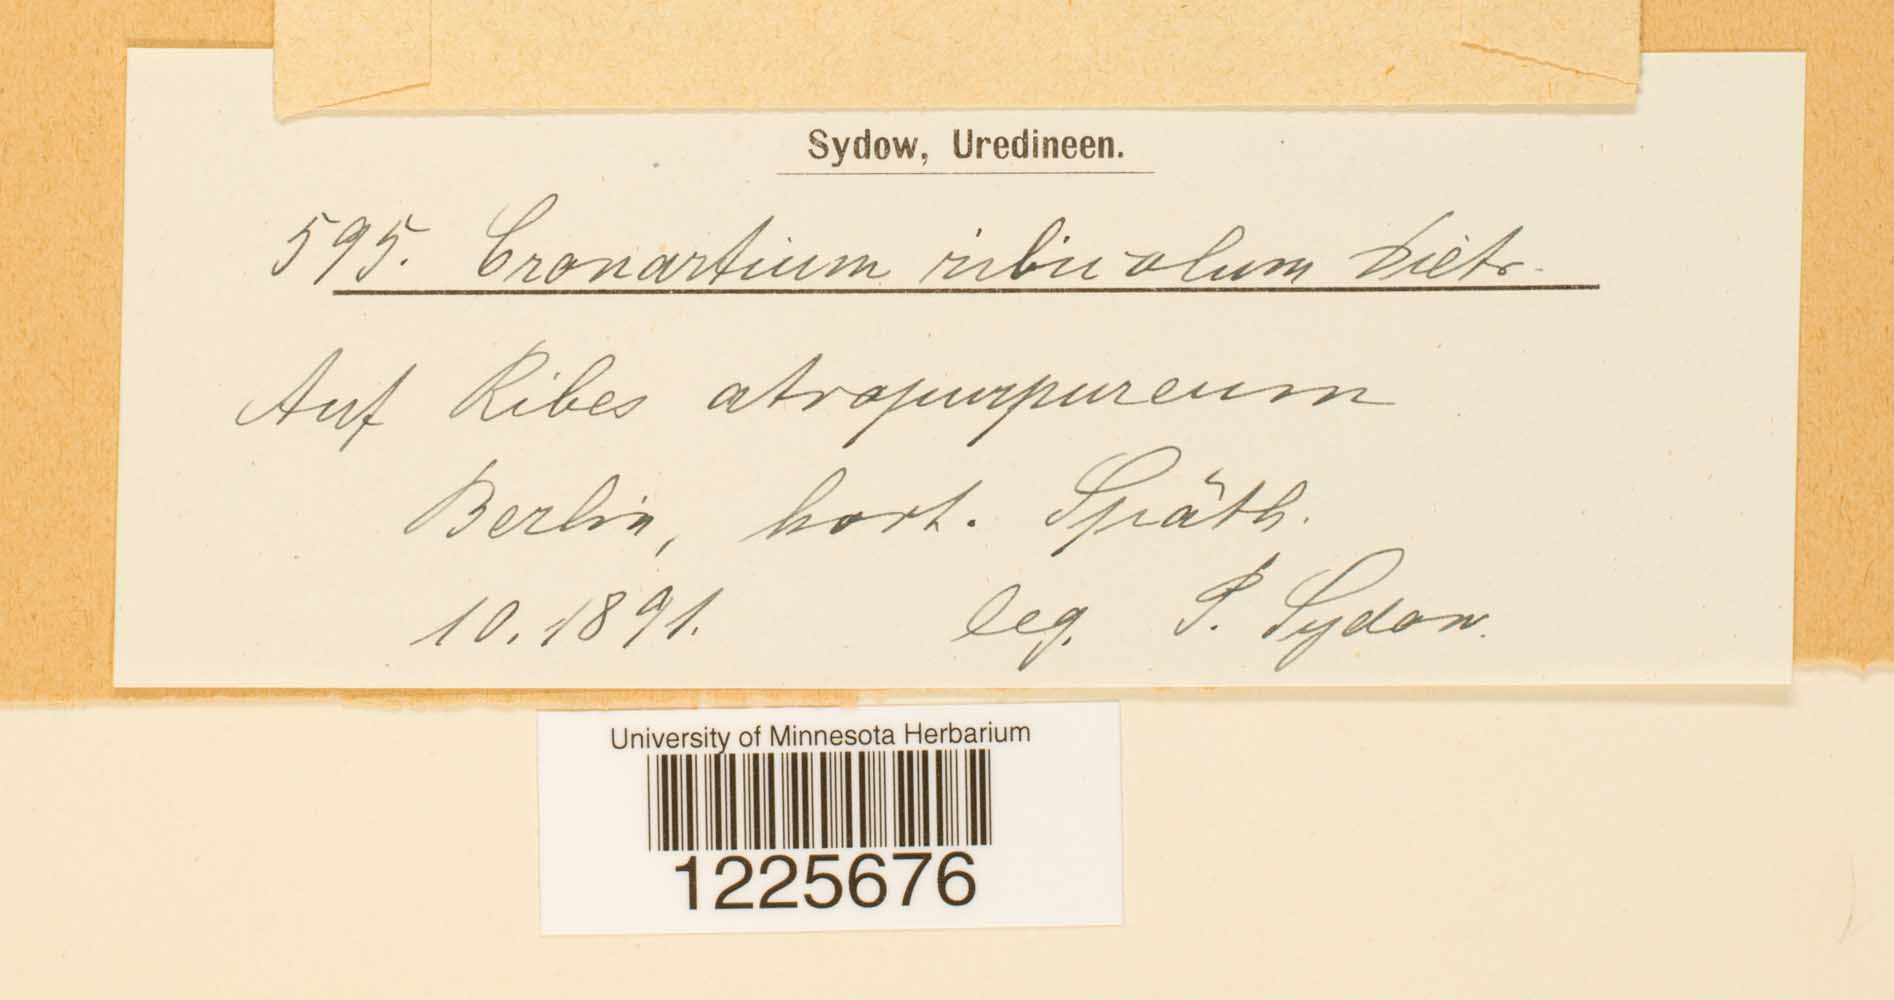 Sydow, Uredineen.
595. Cronartium ribicolum Dietr.
Auf Ribes atropurpureum
Berlin, hort. Späth.
10.1891. leg. P. Sydow.
University of Minnesota Herbarium
1225676